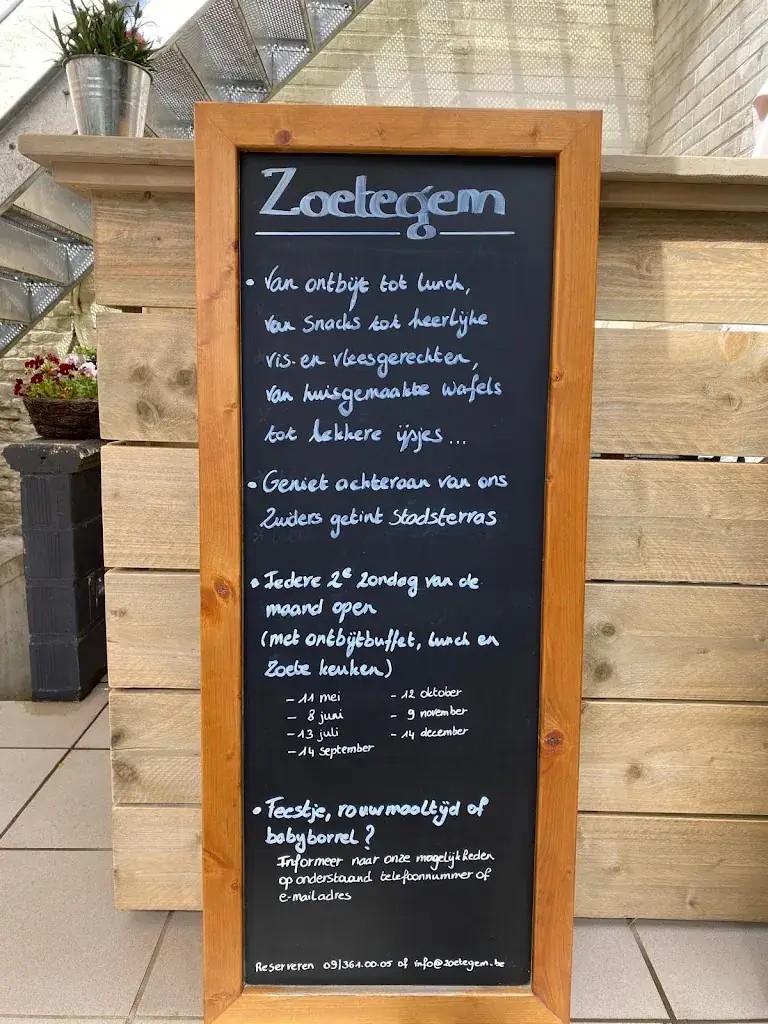 Zoetegem
• Van ontbijt tot lunch,
van snacks tot heerlijke
vis- en vleesgerechten,
van huisgemaakte wafels
tot lekkere ijsjes...
• Geniet achteraan van ons
Zuiders getint Stadsterras
• Iedere 2e zondag van de
maand open
(met ontbijtbuffet, lunch en
Zoete keuken)
- 11 mei - 12 oktober
- 8 juni - 9 november
- 13 juli - 14 december
- 14 september
• Feestje, rouwmaaltijd of
babyborrel?
Informeer naar onze mogelijkheden
op onderstaand telefoonnummer of
e-mailadres
Reserveren 09/361.00.05 of info@zoetegem.be